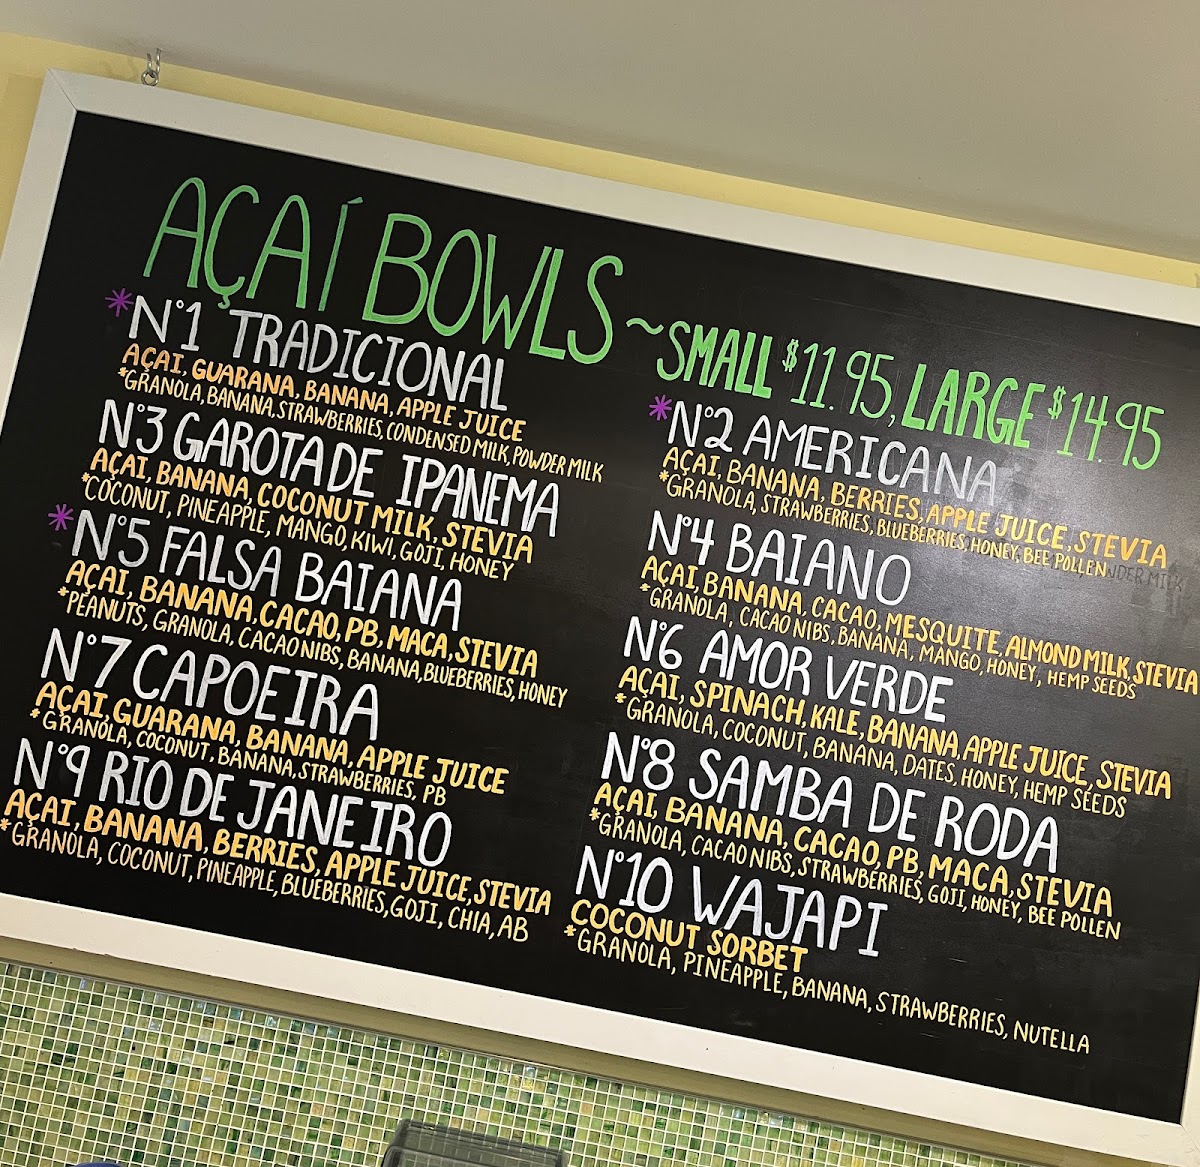 AÇAÍ BOWLS ~ SMALL $11.95, LARGE $14.95
*N°1 TRADICIONAL
AÇAI, GUARANA, BANANA, APPLE JUICE
*GRANOLA, BANANA, STRAWBERRIES, CONDENSED MILK, POWDER MILK
N°3 GAROTA DE IPANEMA
AÇAI, BANANA, COCONUT MILK, STEVIA
*COCONUT, PINEAPPLE, MANGO, KIWI, GOJI, HONEY
*N°5 FALSA BAIANA
AÇAI, BANANA, CACAO, PB, MACA, STEVIA
*PEANUTS, GRANOLA, CACAO NIBS, BANANA, BLUEBERRIES, HONEY
N°7 CAPOEIRA
AÇAI, GUARANA, BANANA, APPLE JUICE
*GRANOLA, COCONUT, BANANA, STRAWBERRIES, PB
N°9 RIO DE JANEIRO
AÇAI, BANANA, BERRIES, APPLE JUICE, STEVIA
*GRANOLA, COCONUT, PINEAPPLE, BLUEBERRIES, GOJI, CHIA, AB
*N°2 AMERICANA
AÇAI, BANANA, BERRIES, APPLE JUICE, STEVIA
*GRANOLA, STRAWBERRIES, BLUEBERRIES, HONEY, BEE POLLEN
N°4 BAIANO
AÇAI, BANANA, CACAO, MESQUITE, ALMOND MILK, STEVIA
*GRANOLA, CACAO NIBS, BANANA, MANGO, HONEY, HEMP SEEDS
N°6 AMOR VERDE
AÇAI, SPINACH, KALE, BANANA, APPLE JUICE, STEVIA
*GRANOLA, COCONUT, BANANA, DATES, HONEY, HEMP SEEDS
N°8 SAMBA DE RODA
AÇAI, BANANA, CACAO, PB, MACA, STEVIA
*GRANOLA, CACAO NIBS, STRAWBERRIES, GOJI, HONEY, BEE POLLEN
N°10 WAJAPI
COCONUT SORBET
*GRANOLA, PINEAPPLE, BANANA, STRAWBERRIES, NUTELLA